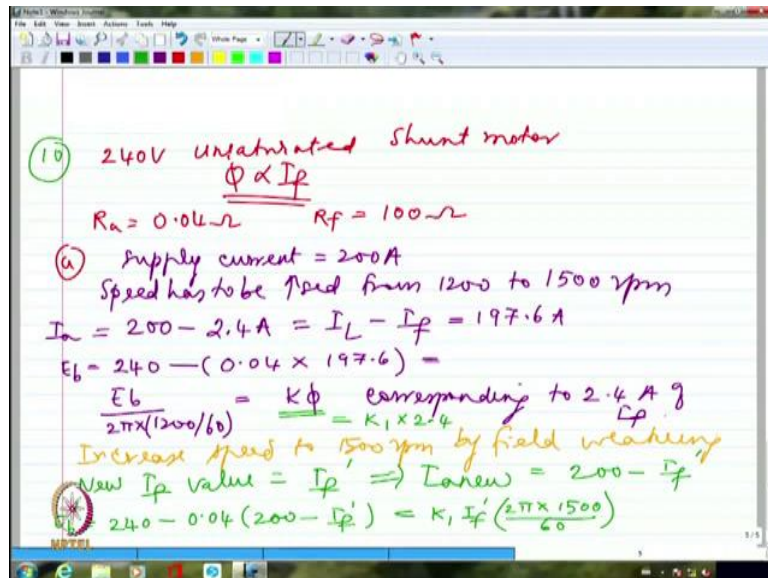 Note1 - Windows Journal
File Edit View Insert Actions Tools Help
Whole Page
B I
10 240V unsaturated Shunt motor
Φ ∝ If
Ra = 0.04Ω Rf = 100Ω
a Supply current = 200A
Speed has to be ↑sed from 1200 to 1500 rpm
Ia = 200 - 2.4A = IL - If = 197.6 A
Eb = 240 - (0.04 × 197.6) =
Eb / 2π×(1200/60) = Kϕ corresponding to 2.4 A of If
= K1 × 2.4
Increase speed to 1500 rpm by field weakening
New If value = If' ⇒ Ianew = 200 - If'
Eb = 240 - 0.04 (200 - If') = K1 If' (2π × 1500 / 60)
NPTEL
5/5
5